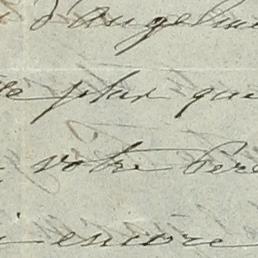 d'Angelina
plus que
votre Père
encore